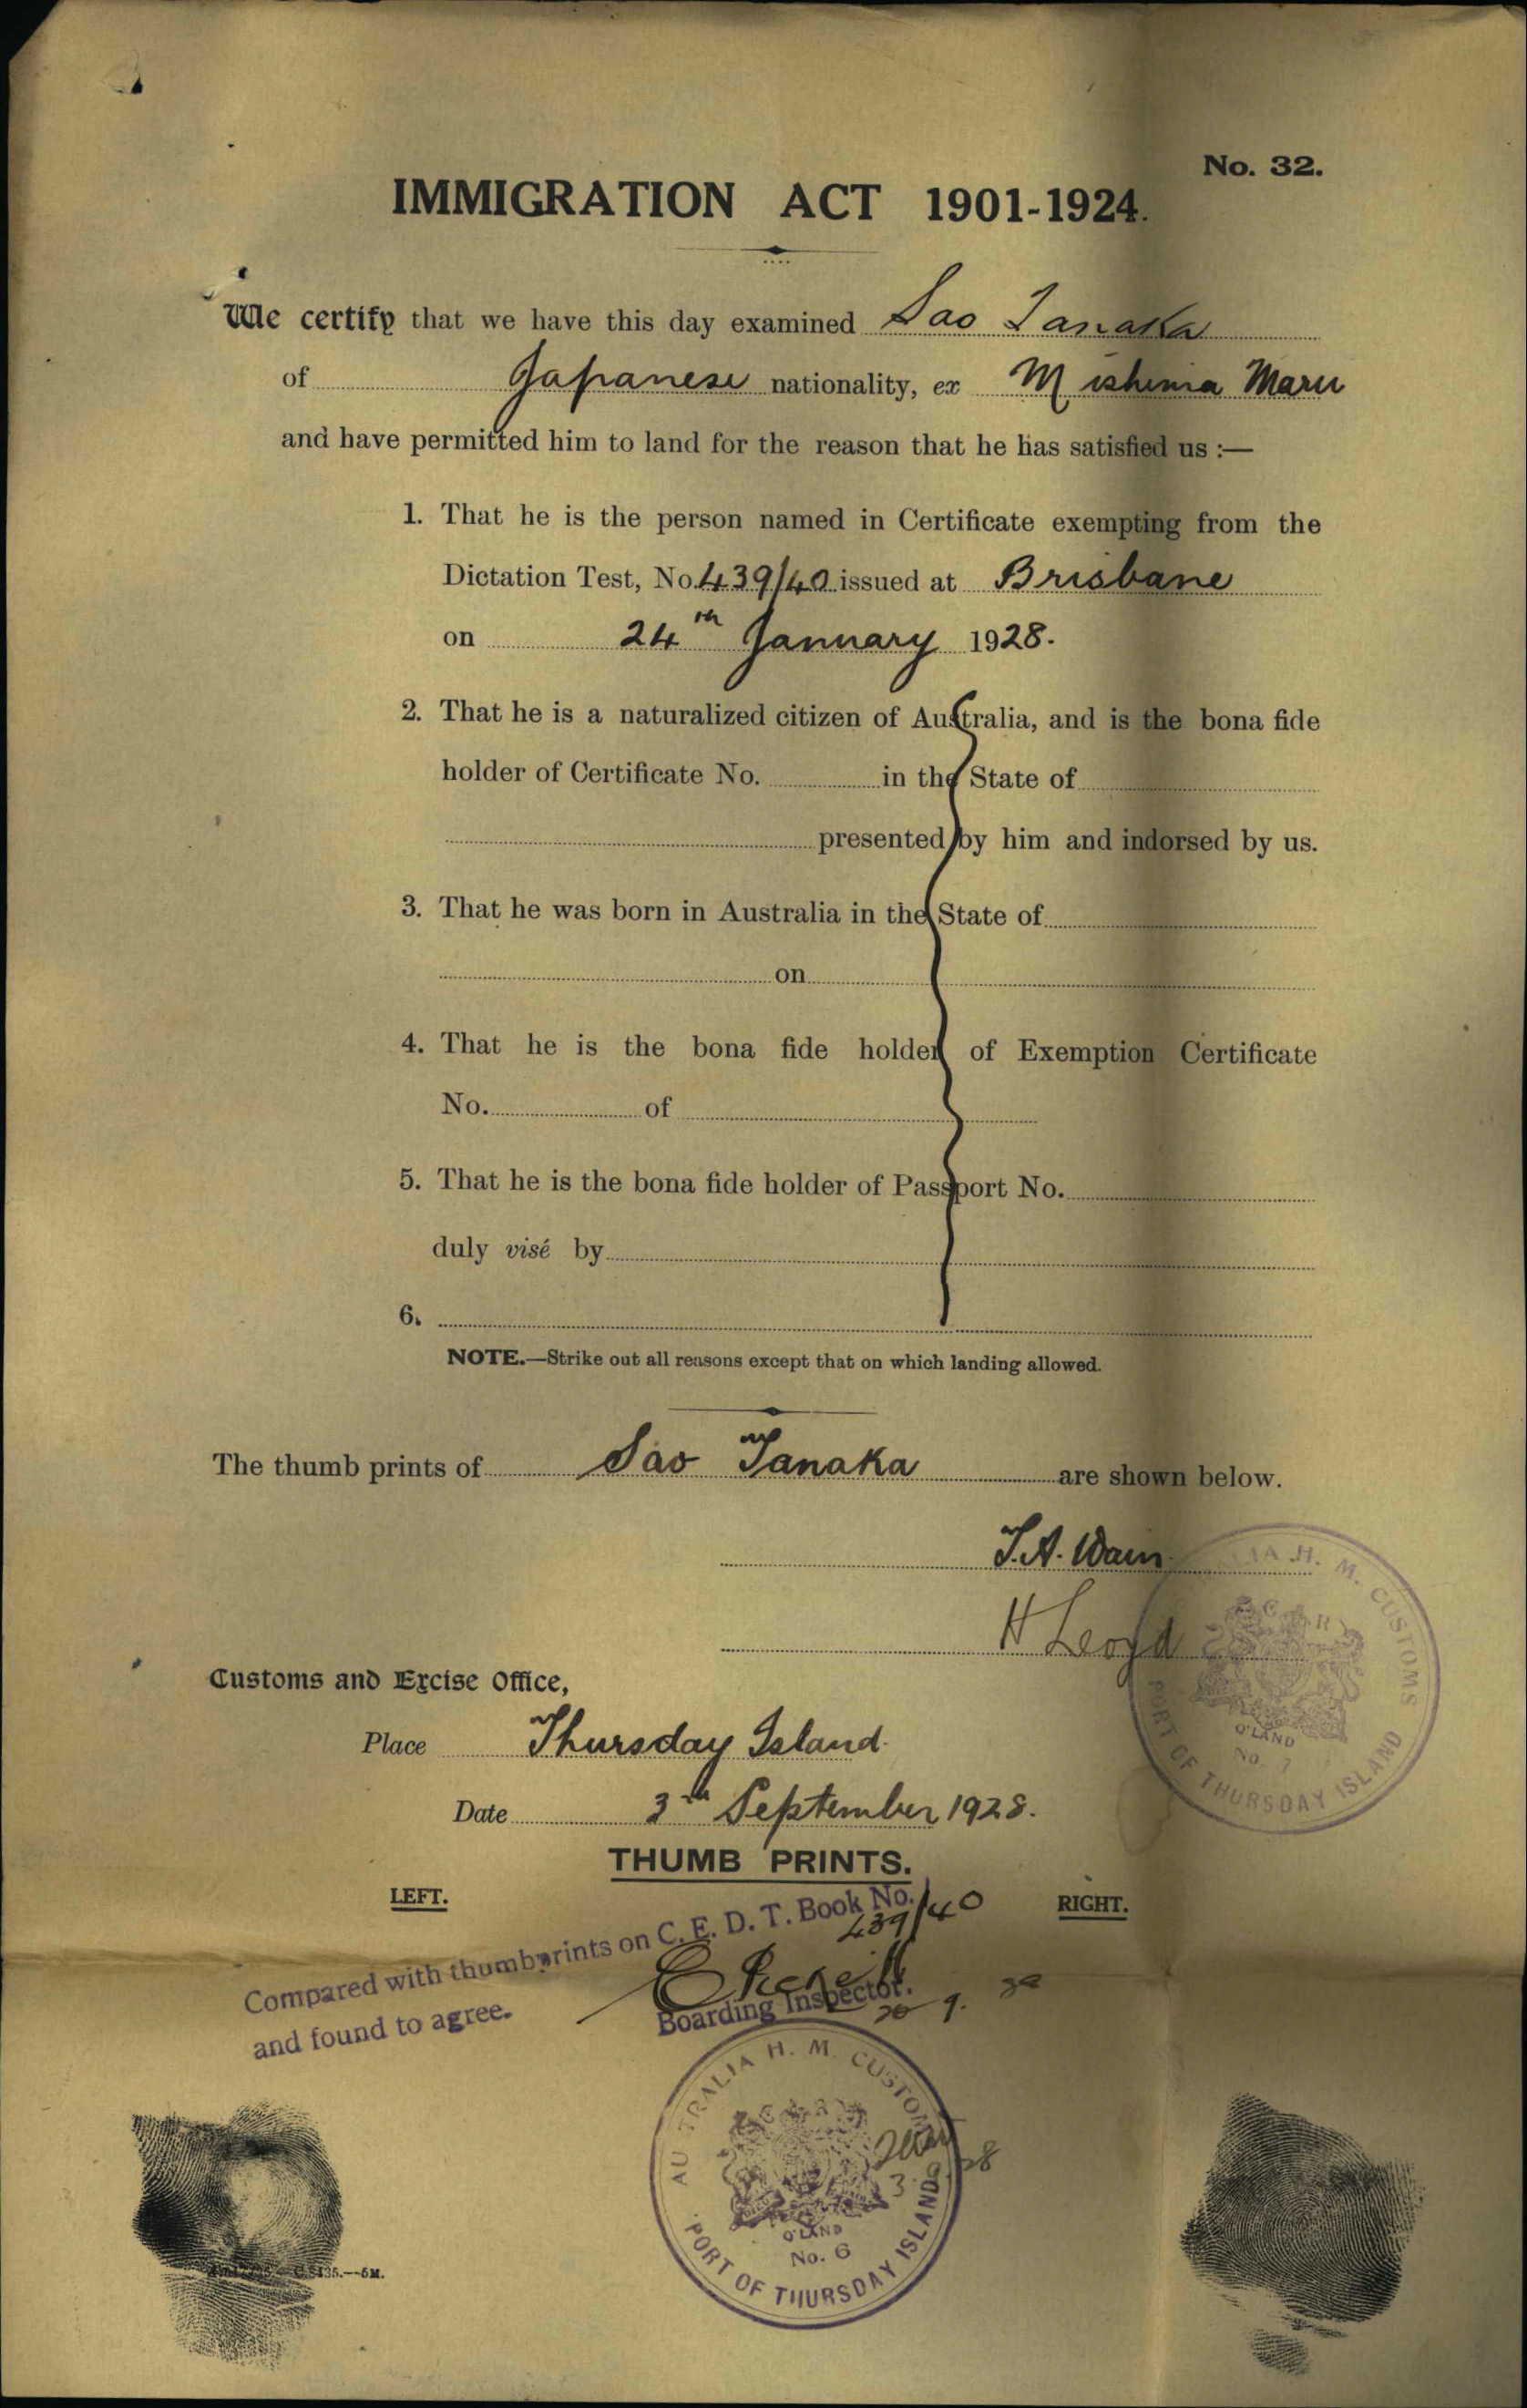 No. 32.
IMMIGRATION ACT 1901-1924.
We certify that we have this day examined Sao Tanaka
of Japanese nationality, ex Mishima Maru
and have permitted him to land for the reason that he has satisfied us :—
1. That he is the person named in Certificate exempting from the
Dictation Test, No. 439/40 issued at Brisbane
on 24th January 1928.
2. That he is a naturalized citizen of Australia, and is the bona fide
holder of Certificate No. in the State of
presented by him and indorsed by us.
3. That he was born in Australia in the State of
on
4. That he is the bona fide holder of Exemption Certificate
No. of
5. That he is the bona fide holder of Passport No.
duly visé by
6.
NOTE.—Strike out all reasons except that on which landing allowed.
The thumb prints of Sao Tanaka are shown below.
T.A. Wain
H Leoyd
Customs and Excise Office,
Place Thursday Island.
Date 3rd September 1928.
THUMB PRINTS.
LEFT. RIGHT.
Compared with thumbprints on C. E. D. T. Book No. 439/40
and found to agree.
Boarding Inspector.
H. M. CUSTOMS
Q'LAND
No. 7
PORT OF THURSDAY ISLAND
AU TRALIA H. M. CUSTOMS
3 28
Q'LAND
No. 6
PORT OF THURSDAY ISLAND
35.—5M.